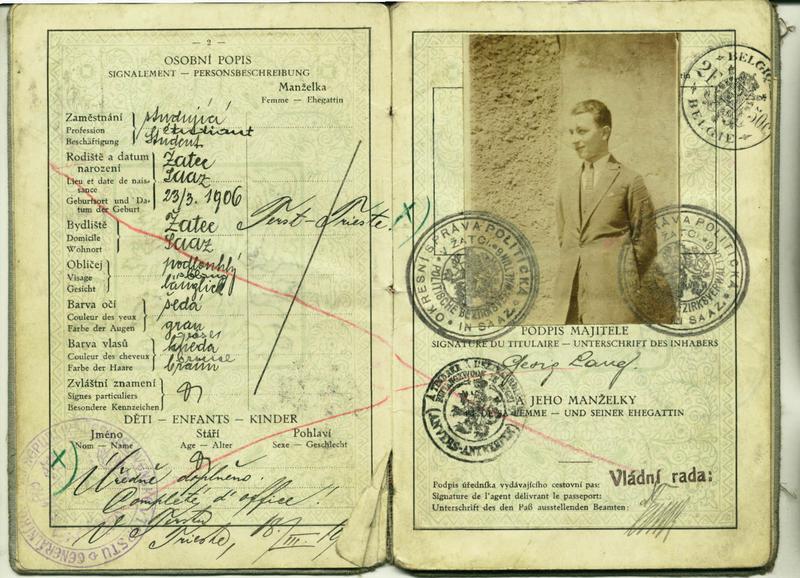 — 2 —
OSOBNÍ POPIS
SIGNALEMENT — PERSONSBESCHREIBUNG
Manželka
Femme — Ehegattin
Zaměstnání
Profession
Beschäftigung
studující
étudiant
Student
Rodiště a datum
narození
Lieu et date de nais-
sance
Geburtsort und Da-
tum der Geburt
Žatec
Saaz
23/3. 1906
Bydliště
Domicile
Wohnort
Žatec
Saaz
Terst-Trieste. x)
Obličej
Visage
Gesicht
podlouhlý
oblong
länglich
Barva očí
Couleur des yeux
Farbe der Augen
šedá
grau
Barva vlasů
Couleur des cheveux
Farbe der Haare
hnědá
braun
Zvláštní znamení
Signes particuliers
Besondere Kennzeichen
DĚTI — ENFANTS — KINDER
Jméno
Nom — Name
Stáří
Age — Alter
Pohlaví
Sexe — Geschlecht
x)
Úředně doplněno.
Complété d'office!!
V Terstu
Trieste,
BELGIQUE
BELGIE
OKRESNÍ SPRÁVA POLITICKÁ
V ŽATCI
POLITISCHE BEZIRKSVERWALTUNG
IN SAAZ
PODPIS MAJITELE
SIGNATURE DU TITULAIRE — UNTERSCHRIFT DES INHABERS
Georg Lang
A JEHO MANŽELKY
ET DE SA FEMME — UND SEINER EHEGATTIN
(ANVERS-ANTWERPEN)
Podpis úředníka vydávajícího cestovní pas:
Signature de l'agent délivrant le passeport:
Unterschrift des den Paß ausstellenden Beamten:
Vládní rada: